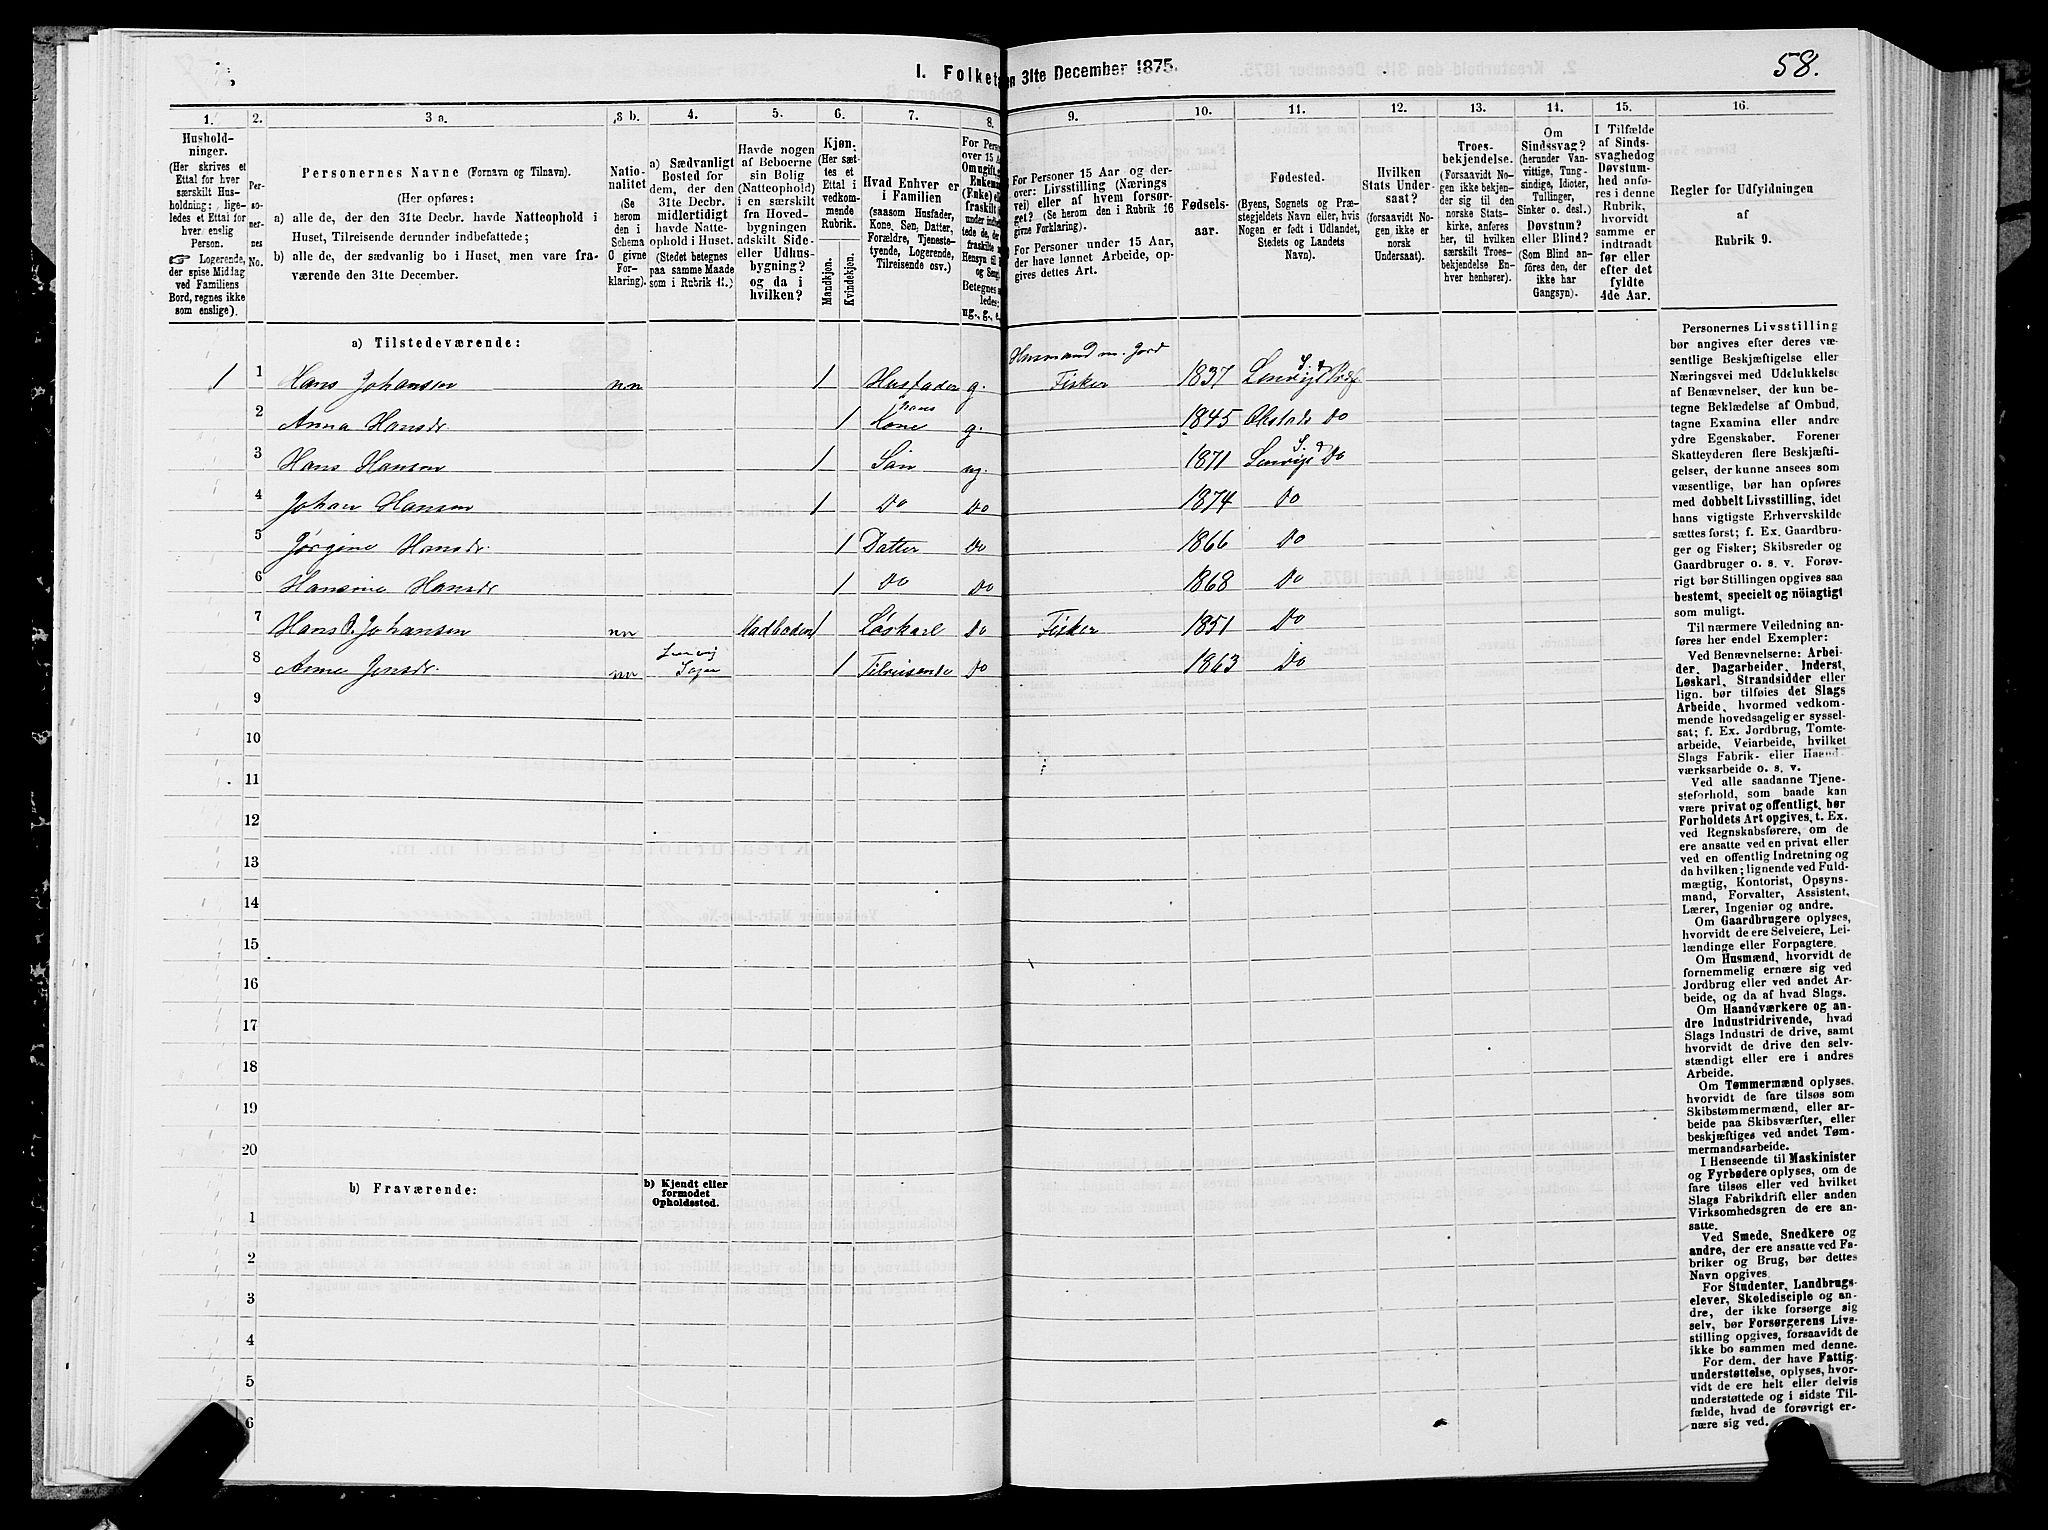 58.
I. Folket
n 31te December 1875.
1.
2.
3 a.
3 b.
4.
5.
6.
7.
8.
9.
10.
11.
12.
13.
14.
15.
16.
Hushold-
ninger.
(Her skrives et
Ettal for hver
særskilt Hus-
holdning; lige-
ledes et Ettal for
hver enslig
Person.
☞ Logerende,
der spise Middag
ved Familiens
Bord, regnes ikke
som enslige).
Per-
so-
ner-
nes
No.
Personernes Navne (Fornavn og Tilnavn).
(Her opføres:
a) alle de, der den 31te Decbr. havde Natteophold i
Huset, Tilreisende derunder indbefattede;
b) alle de, der sædvanlig bo i Huset, men vare fra-
værende den 31te December.
Natio-
nalitet
(Se
herom
den i
Schema
C givne
For-
klaring).
a) Sædvanligt
Bosted for
dem, der den
31te Decbr.
midlertidigt
havde Natte-
ophold i Huset.
(Stedet betegnes
paa samme Maade
som i Rubrik 11.)
Havde nogen
af Beboerne
sin Bolig
(Natteophold)
i en særskilt
fra Hoved-
bygningen
adskilt Side-
eller Udhus-
bygning?
og da i
hvilken?
Kjøn:
(Her sæt-
tes et
Ettal i
vedkom-
mende
Rubrik.
Mandkjøn.
Kvindekjøn.
Hvad Enhver er
i Familien
(saasom Husfader,
Kone, Søn, Datter,
Forældre, Tjeneste-
tyende, Logerende,
Tilreisende osv.)
For Person
over 15 Aa
Om ugift, g
Enkema
(Enke) el
fraskilt
under indb
tede de, de
fraskilte
Hensyn til
og Seng
Betegnes
ledes;
ug., g., e,
For Personer 15 Aar og der-
over: Livsstilling (Nærings
vei) eller af hvem forsør-
get? (Se herom den i Rubrik 16
givne Forklaring).
For Personer under 15 Aar,
der have lønnet Arbeide, op-
gives dettes Art.
Fødsels-
aar.
Fødested.
(Byens, Sognets og Præ-
stegjeldets Navn eller, hvis
Nogen er født i Udlandet,
Stedets og Landets
Navn).
Hvilken
Stats Under-
saat?
(forsaavidt No-
gen ikke er
norsk
Undersaat).
Troes-
bekjendelse.
(Forsaavidt No-
gen ikke bekjen-
der sig til den
norske Stats-
kirke, anføres
her, til hvilken
særskilt Troes-
bekjendelse En-
hver henhører).
Om
Sindssvag?
(herunder Van-
vittige, Tung-
sindige, Idioter,
Tullinger,
Sinker o. desl.)
Døvstum?
eller Blind?
(Som Blind an-
føres den, der
ikke har
Gangsyn).
I Tilfælde
af Sinds-
svaghed og
Døvstum-
hed anfø-
res i denne
Rubrik,
hvorvidt
samme er
indtraadt
før eller
efter det
fyldte
4de Aar.
Regler for Udfyldningen
af
Rubrik 9.
a) Tilstedeværende:
Husmand m. Jord
1 1 Hans Johansen nn 1 Husfader g. Fisker 1837 Lenvigs S. og Præst
2 Anna Hansdr. 1 hans Kone g. 1845 Do
3 Hans Hansen 1 Søn ug. 1871 Lenvigs S. Do
4 Johan Hansen 1 Do Do 1874 Do
5 Jørgine Hansdr. 1 Datter Do 1866 Do
6 Hansine Hansdr 1 Do Do 1868 Do
7 Hans J. Johansen nn Madboden 1 Løskarl Do Fisker 1851 Do
8 Anne Jensdr. nn Lenvig Sogn 1 Tilreisende Do 1863 Do
9
10
11
12
13
14
15
16
17
18
19
20
b) Fraværende:
b) Kjendt eller
formodet
Opholdssted.
1
2
3
4
5
6
Personernes Livsstilling
bør angives efter deres væ-
sentlige Beskjæftigelse eller
Næringsvei med Udelukkelse
af Benævnelser, der kun be-
tegne Beklædelse af Ombud,
tagne Examina eller andre
ydre Egenskaber. Forener
Skatteyderen flere Beskjæfti-
gelser, der kunne ansees som
væsentlige, bør han opføres
med dobbelt Livsstilling, idet
hans vigtigste Erhvervskilde
sættes først; f. Ex. Gaardbru-
ger og Fisker; Skibsreder og
Gaardbruger o. s. v. Forøv-
rigt bør Stillingen opgives saa
bestemt, specielt og nöiagtigt
som muligt.
Til nærmere Veiledning an-
føres her endel Exempler:
Ved Benævnelserne: Arbei-
der, Dagarbeider, Inderst,
Løskarl, Strandsidder eller
lign. bør tilføies det Slags
Arbeide, hvormed vedkom-
mende hovedsagelig er syssel-
sat; f. Ex. Jordbrug, Tomte-
arbeide, Veiarbeide, hvilket
Slags Fabrik- eller Haand-
værksarbeide o. s. v.
Ved alle saadanne Tjene-
steforhold, som baade kan
være privat og offentligt, bør
Forholdets Art opgives, t. Ex.
ved Regnskabsførere, om de
ere ansatte ved en privat eller
ved en offentlig Indretning og
da hvilken; lignende ved Fuld-
mægtig, Kontorist, Opsyns-
mand, Forvalter, Assistent,
Lærer, Ingeniør og andre.
Om Gaardbrugere oplyses,
hvorvidt de ere Selveiere, Lei-
lændinge eller Forpagtere.
Om Husmænd, hvorvidt de
fornemmelig ernære sig ved
Jordbrug eller ved andet Ar-
beide, og da af hvad Slags.
Om Haandværkere og an-
dre Industridrivende, hvad
Slags Industri de drive, samt
hvorvidt de drive den selv-
stændigt eller ere i andres
Arbeide.
Om Tømmermænd oplyses,
hvorvidt de fare tilsøs som
Skibstømmermænd, eller ar-
beide paa Skibsværfter, eller
beskjæftiges ved andet Tøm-
mermandsarbeide.
I Henseende til Maskinister
og Fyrbødere oplyses, om de
fare tilsøs eller ved hvilket
Slags Fabrikdrift eller anden
Virksomhedsgren de ere an-
satte.
Ved Smede, Snedkere og
andre, der ere ansatte ved Fa-
briker og Brug, bør dettes
Navn opgives.
For Studenter, Landbrugs-
elever, Skoledisciple og an-
dre, der ikke forsørge sig
selv, bør Forsørgerens Livs-
stilling opgives, forsaavidt de
ikke bo sammen med denne.
For dem, der have Fattig-
understøttelse, oplyses, hvor-
vidt de ere helt eller delvis
understøttede og i sidste Til-
fælde, hvad de forøvrigt er-
nære sig ved.